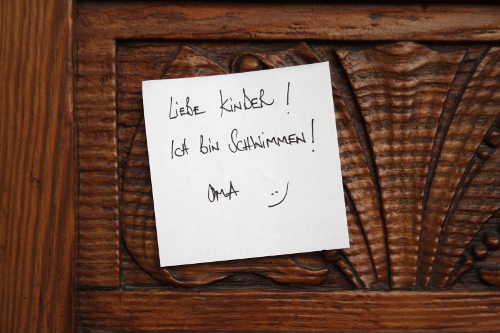 LIEBE KINDER !
ICH BIN SCHWIMMEN !
OMA :)